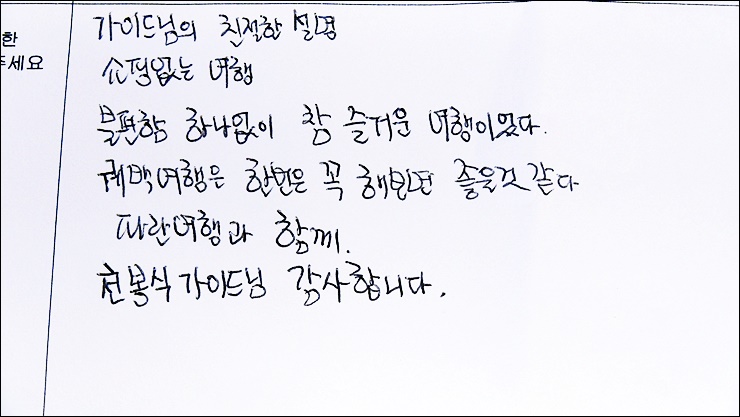 한
주세요
가이드님의 친절한 설명
쇼핑없는 여행
불편함 하나없이 참 즐거운 여행이었다.
퀘백여행은 한번은 꼭 해보면 좋을것 같다
파란여행과 함께.
천봉식 가이드님 감사합니다.